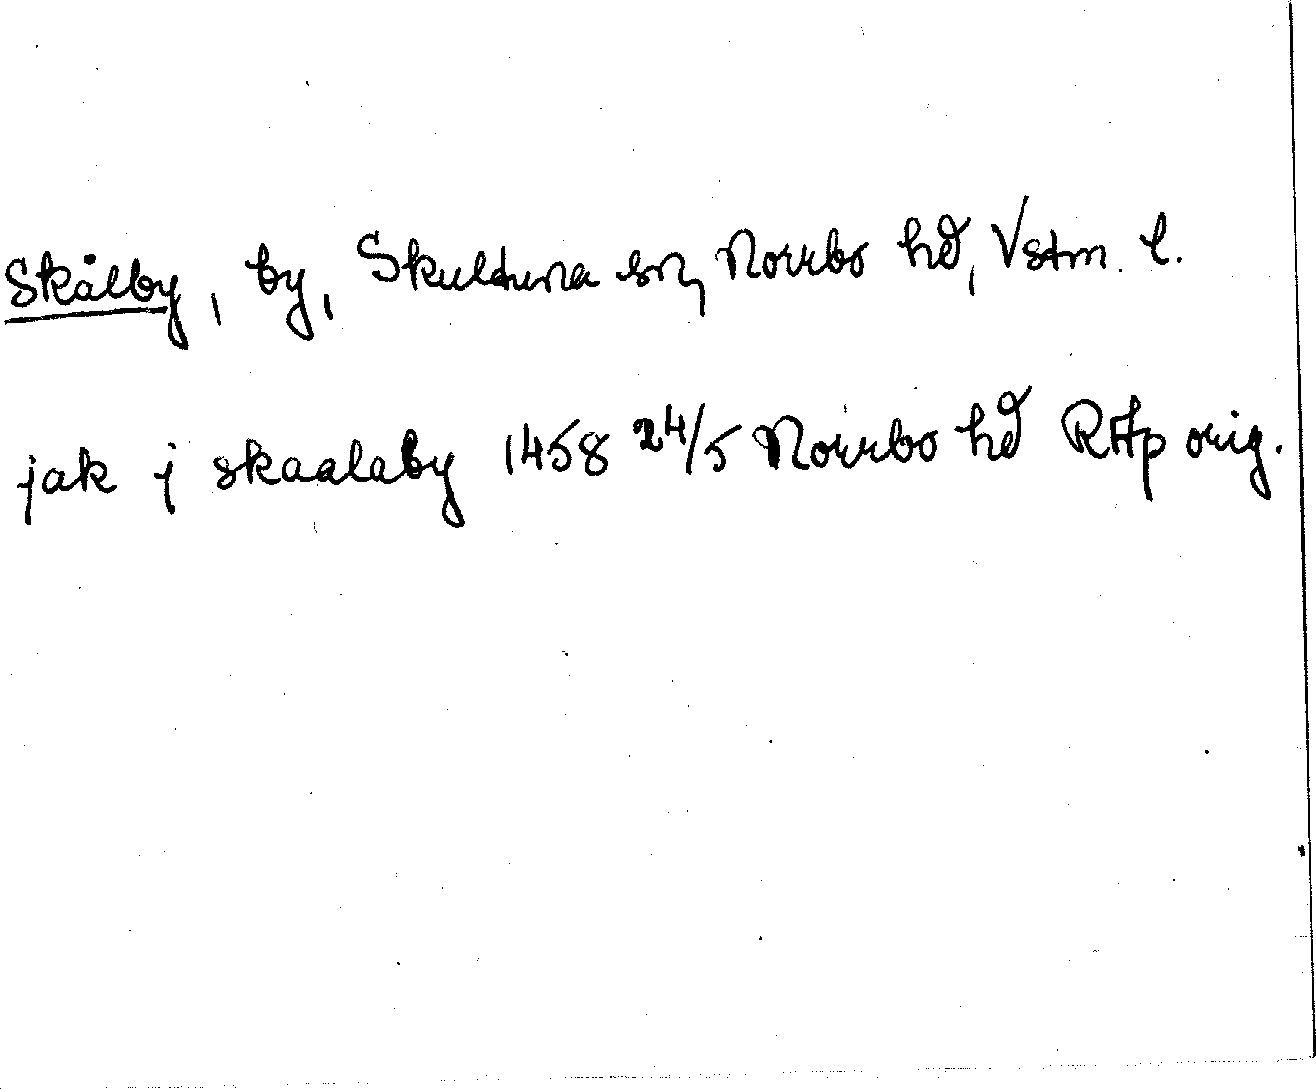 Skålby, by, Skultuna sn, Norrbo hd, Vstm. l.
jak j skaalaby 1458 24/5 Norrbo hd RAp orig.